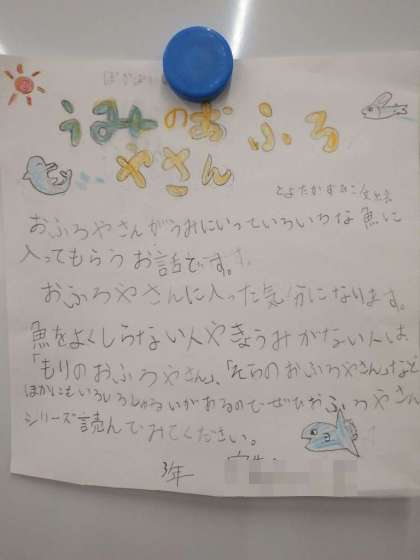 うみのおふろ
やさん
とよたかずひこ 文と絵
おふろやさんがうみにいっていろいろな魚に
入ってもらうお話です。
おふろやさんに入った気分になります。
魚をよくしらない人やきょうみがない人は
「もりのおふろやさん」、「そらのおふろやさん」など
ほかにもいろいろしゅるいがあるのでぜひおふろやさん
シリーズ読んでみてください。
3年